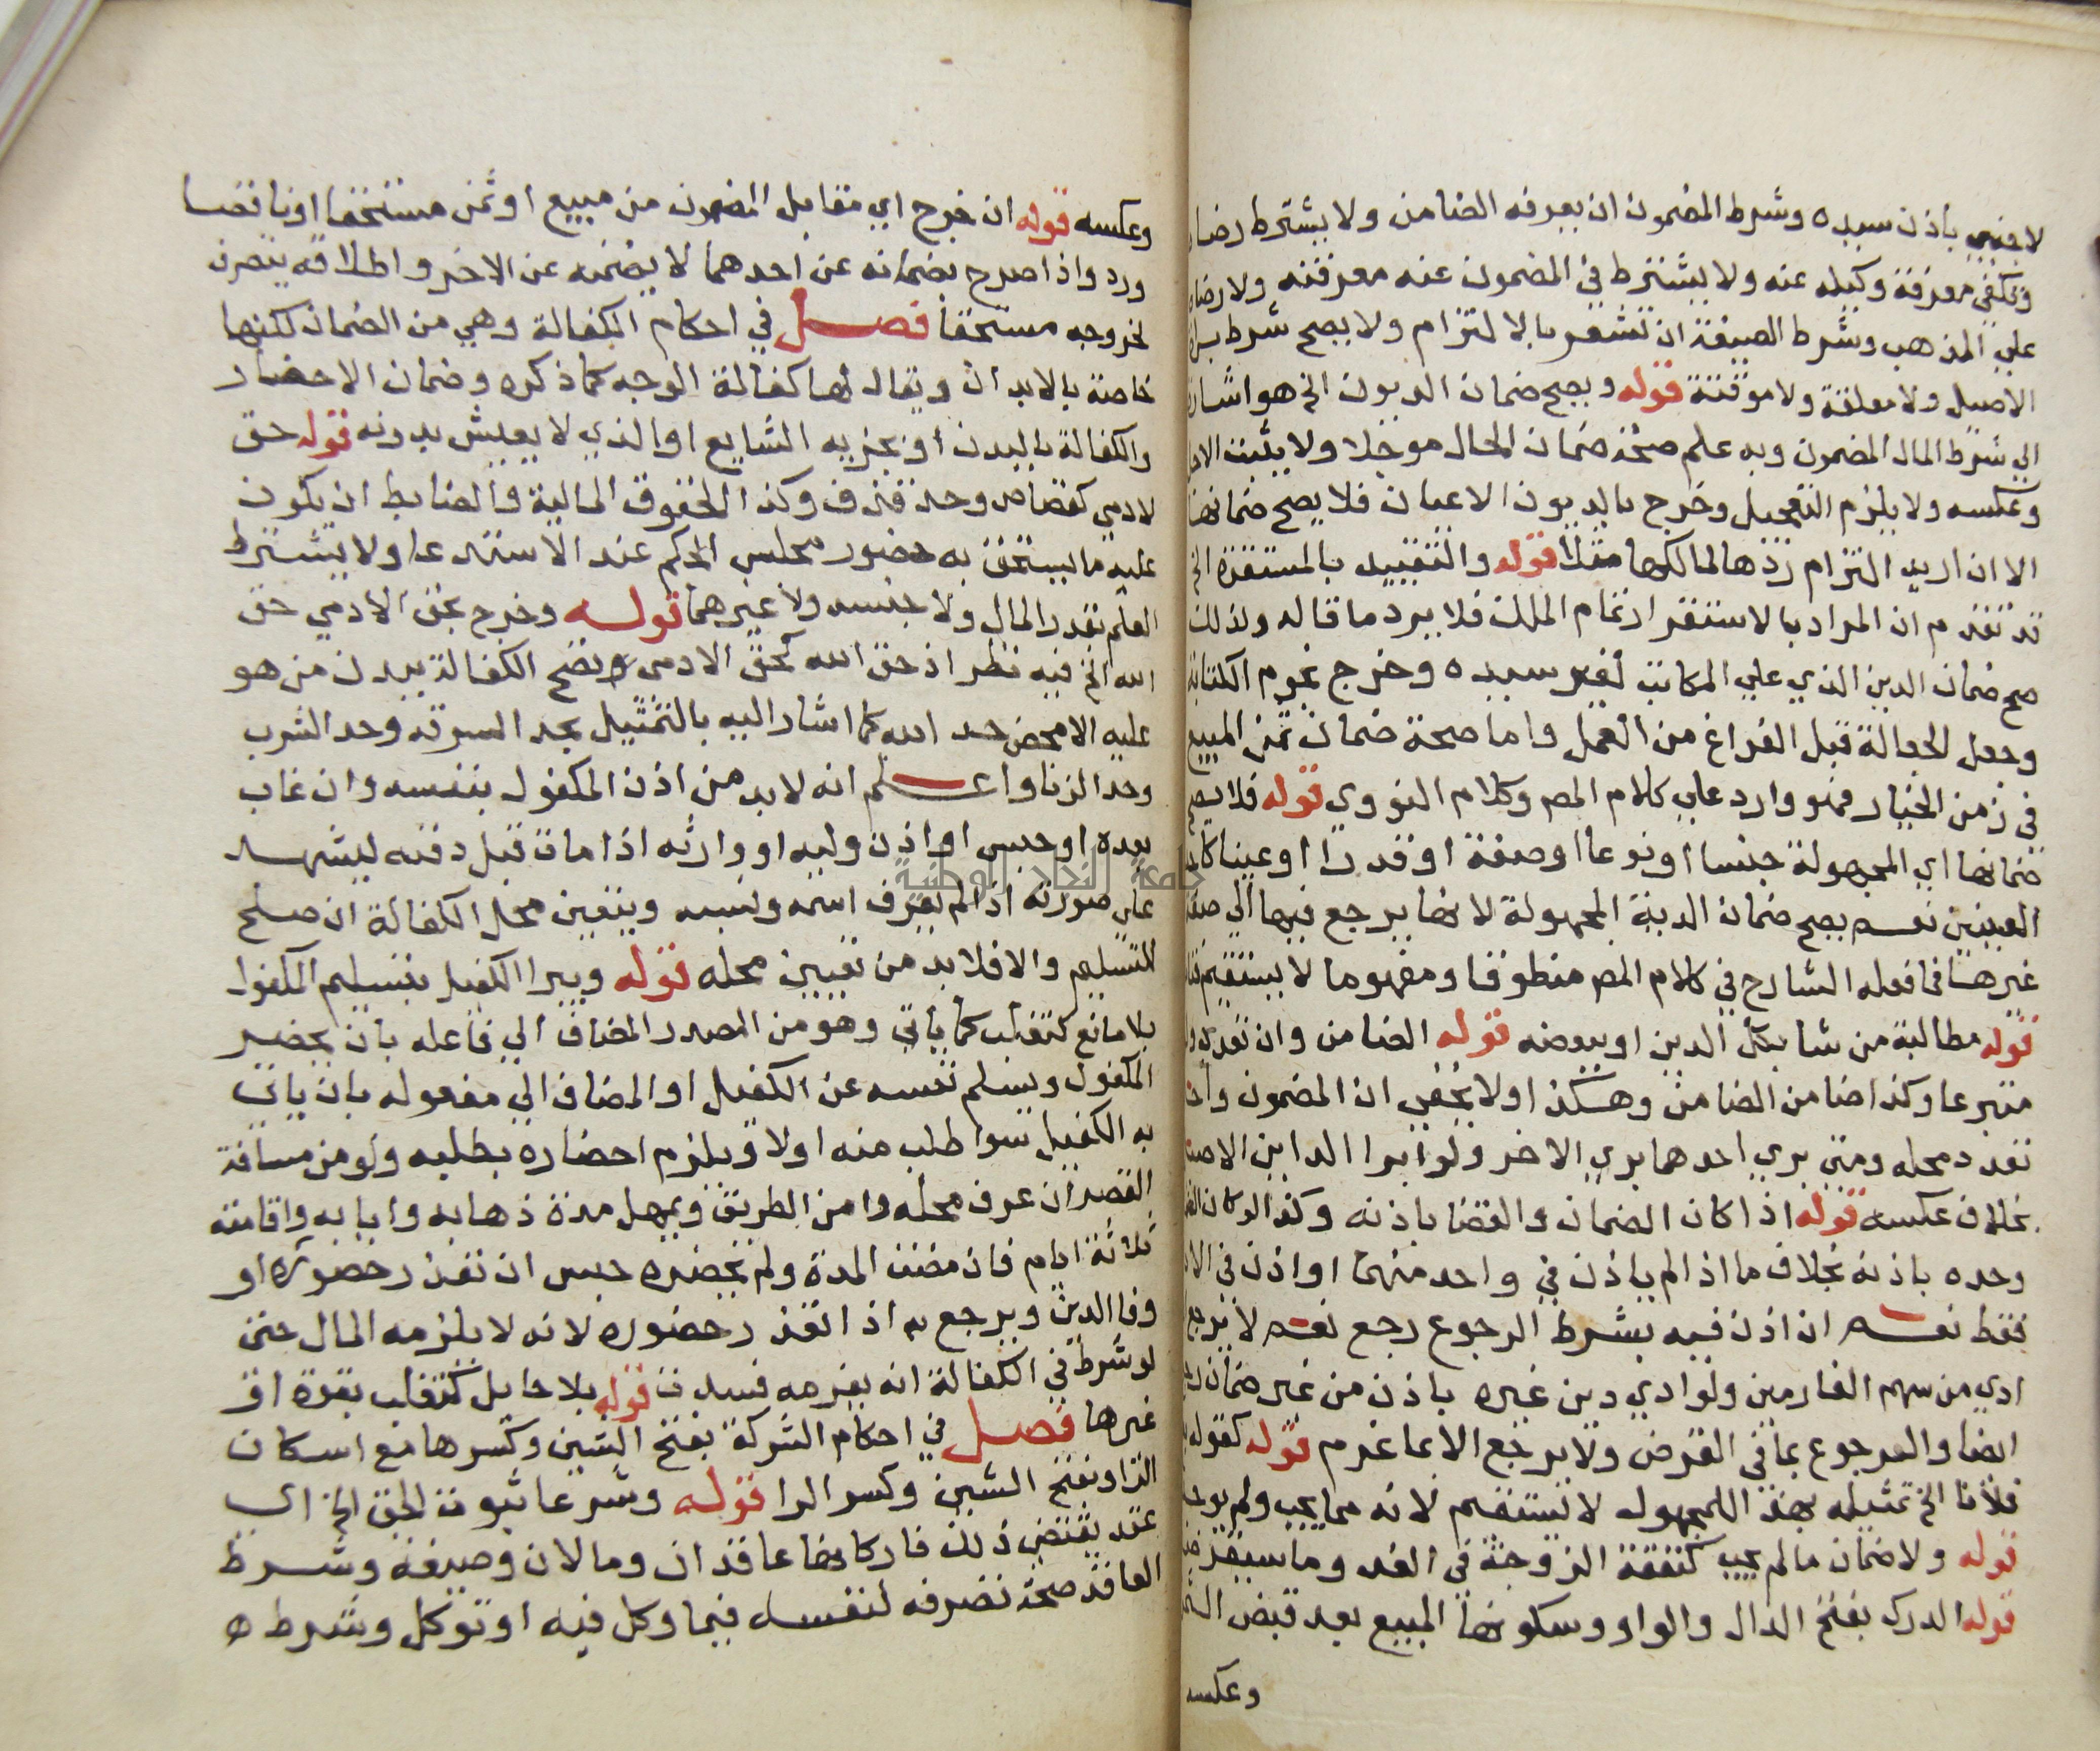 لاجنبي باذن سيده وشرط المضمون ان يعرفه الضامن ولا يشترط رضاه
وتكفي معرفة وكيله عنه ولا يشترط في المضمون عنه معرفته ولا رضاه
علي المذهب وشرط الصيغة ان تشعر بالالتزام ولا يصح شرط براة
الاصيل ولا معلقة ولا موقتة قوله ويصح ضمان الديون الخ هو اشارة
الي شرط المال المضمون وبه علم صحة ضمان الحال موجلا ولا يثبت الاجل
وعكسه ولا يلزم التعجيل وخرج بالديون الاعيان فلا يصح ضمانها
الا ان اريد التزام ردها لمالكها مثلا قوله والتقييد بالمستقرة الخ
قد تقدم ان المراد بالاستقرار تمام الملك فلا يرد ما قاله ولذلك
صح ضمان الدين الذي علي المكاتب لغير سيده وخرج نجوم الكتابة
وجعل الجعالة قبل الفراغ من العمل واما صحة ضمان ثمن المبيع
في زمن الخيار فهو وارد علي كلام المص وكلام النووي قوله فلا يصح
ضمانها اي المجهولة جنسا او نوعا او صفة او قدرا او عينا كاحد
العينين نعم يصح ضمان الدية المجهولة لانها يرجع فيها الي صفة
غيرها فما فعله الشارح في كلام المص منطوقا ومفهوما لا يستقيم
قوله مطالبة من شا بكل الدين او ببعضه قوله الضامن وان تعدد ولو
متبرعا وكذا ضامن الضامن وهكذا ولا يخفي ان المضمون واحد
تعدد محله ومتي بري احدهما بري الاخر ولو ابرا الداين الاصيل
بخلاف عكسه قوله اذا كان الضمان والقضا باذنه وكذا لو كان الضمان
وحده باذنه بخلاف ما اذا لم ياذن في واحد منهما او اذن في الادا
فقط نعم ان اذن فيه بشرط الرجوع رجع نعم لا يرجع
ادي من سهم الغارمين ولو ادي دين غيره باذن من غير ضمان رجع
ايضا والمرجوع بما في القرض ولا يرجع الا بما غرم قوله كقوله
فلانا الخ تمثيله بهذا للمجهول لا يستقيم لانه مما يجب ولم يوجد
قوله ولا ضمان ما لم يجب كنفقة الزوجة في الغد وما سيقرضه
قوله الدرك بفتح الدال والواو وسكونها المبيع بعد قبض الثمن
وعكسه
وعكسه قوله ان خرج اي مقابل المضمون من مبيع او ثمن مستحقا او ناقصا
ورد واذا صرح بضمانه عن احدهما لا يضمنه عن الاخر واطلاقه ينصرف
لخروجه مستحقا فصل في احكام الكفالة وهي من الضمان لكنها
خاصة بالابدان ويقال لها كفالة الوجه كما ذكره وضمان الاحضار
والكفالة بالبدن او بجزيه الشايع او الذي لا يعيش بدونه قوله حق
لادمي كقصاص وحد قذف وكذا الحقوق المالية فالضابط ان يكون
عليه ما يستحق به حضور مجلس الحكم عند الاستدعا ولا يشترط
العلم بقدر المال ولا جنسه ولا غيرهما قوله وخرج بحق الادمي حق
الله الخ فيه نظر اذ حق الله كحق الادمي وتصح الكفالة ببدن من هو
عليه الا محض حد الله كما اشار اليه بالتمثيل بحد السرقة وحد الشرب
وحد الزنا واعلم انه لابد من اذن المكفول بنفسه وان غاب
بعده او حبس او اذن وليه او وارثه اذا مات قبل دفنه ليشهد
علي صورته اذا لم يعرف اسمه ونسبه ويتعين محل الكفالة ان صلح
للتسليم والا فلا بد من تعيين محله قوله ويبرا الكفيل بتسليم المكفول
بلا مانع كتغلب كما ياتي وهو من المصدر المضاف الي فاعله بان يحضر
المكفول ويسلم نفسه عن الكفيل او المضاف الي مفعوله بان ياتي
به الكفيل سوا طلب منه اولا ويلزم احضاره بطلبه ولو من مسافة
القصر ان عرف محله وامن الطريق ويمهل مدة ذهابه وايابه واقامته
ثلاثة ايام فان مضت المدة ولم يحضره حبس ان تعذر حضوره او
وفا الدين ويرجع به اذا تعذر حضوره لانه لا يلزمه المال حتي
لو شرط في الكفالة انه يغرمه فسدت قوله بلا حايل كتغلب بقوة او
غيرها فصل في احكام الشركة بفتح الشين وكسرها مع اسكان
الرا وبفتح الشين وكسر الرا قوله وشرعا ثبوت الحق الخ اي
عقد يقتضي ذلك فاركانها عاقدان ومالان وصيغة وشرط
العاقد صحة تصرفه لنفسه فيما وكل فيه او توكل وشرط ه
جامعة النجاح الوطنية